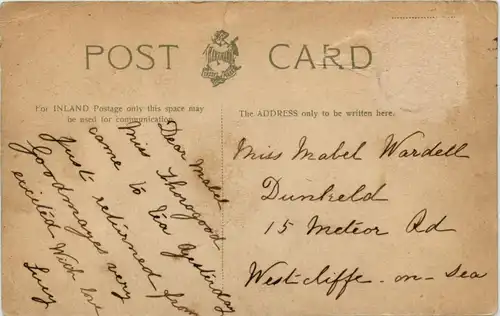 POST CARD
For INLAND Postage only this space may
be used for communication.
The ADDRESS only to be written here.
Dear Mabel
Miss Thorogood
came to tea yesterday
Just returned from
Goodmayes very
excited With love
Lucy
Miss Mabel Wardell
Dunkeld
15 Meteor Rd
Westcliffe-on-Sea